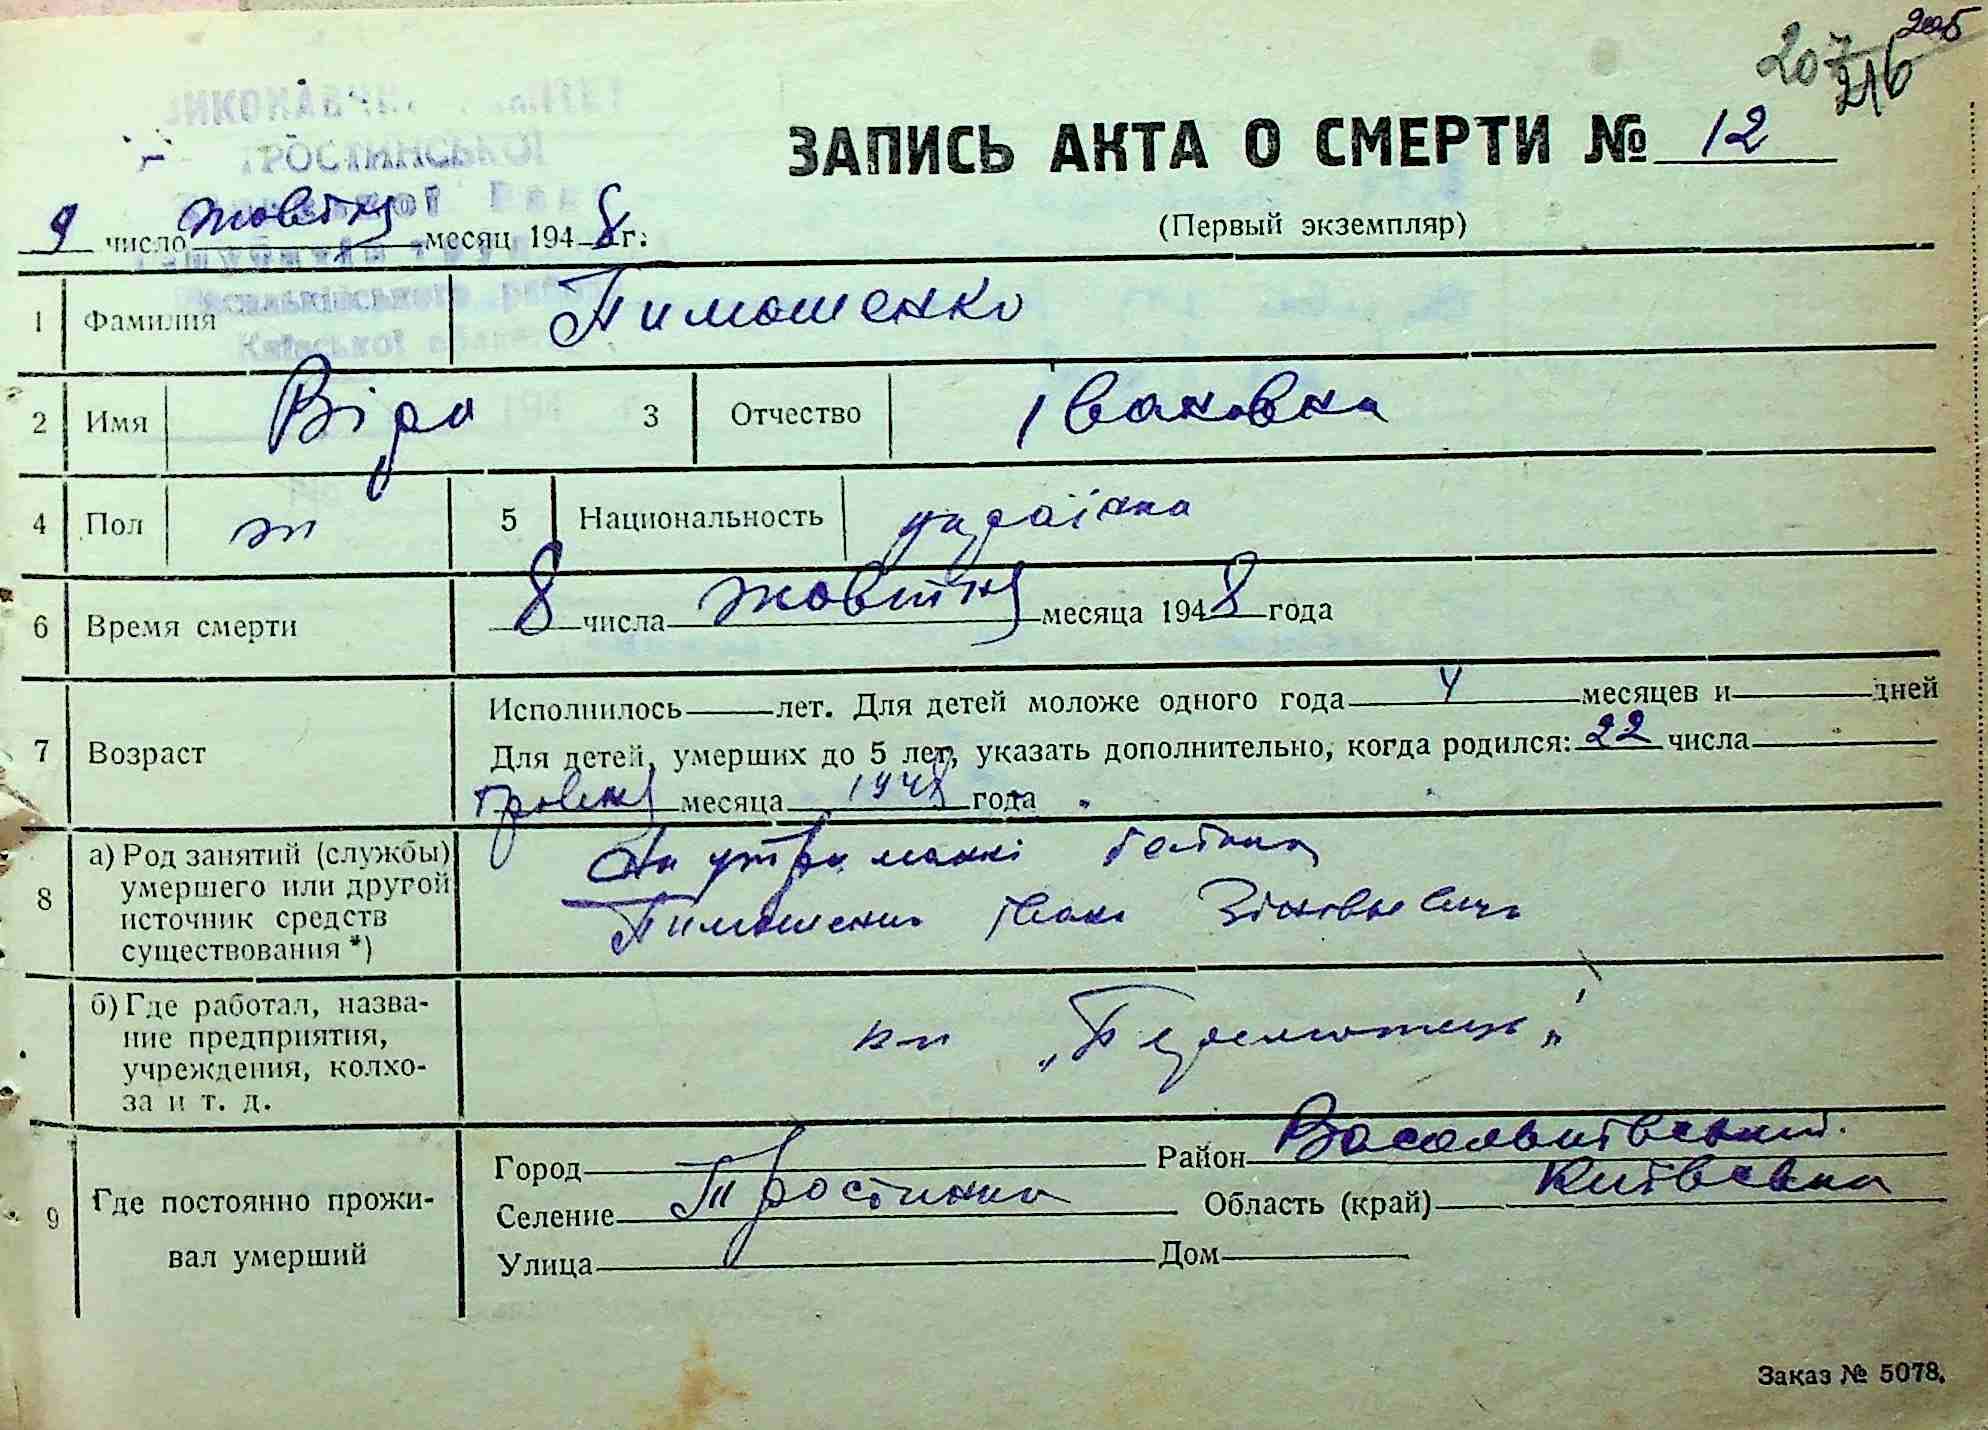 205
207
216
ЗАПИСЬ АКТА О СМЕРТИ № 12
(Первый экземпляр)
9 число жовтня месяц 1948 г.
1 Фамилия Тимошенко
2 Имя Віра 3 Отчество Івановна
4 Пол ж 5 Национальность українка
6 Время смерти 8 числа жовтня месяца 1948 года
7 Возраст Исполнилось лет. Для детей моложе одного года 4 месяцев и дней
Для детей, умерших до 5 лет, указать дополнительно, когда родился: 22 числа
травня месяца 1948 года
8 а) Род занятий (службы) умершего или другой источник средств существования *)
На утриманні батька
Тимошенко Івана Зіновьевича
б) Где работал, название предприятия, учреждения, колхоза и т. д.
9 Где постоянно проживал умерший
Город Район Васильківський
Селение Тростинка Область (край) Київська
Улица Дом
Заказ № 5078.